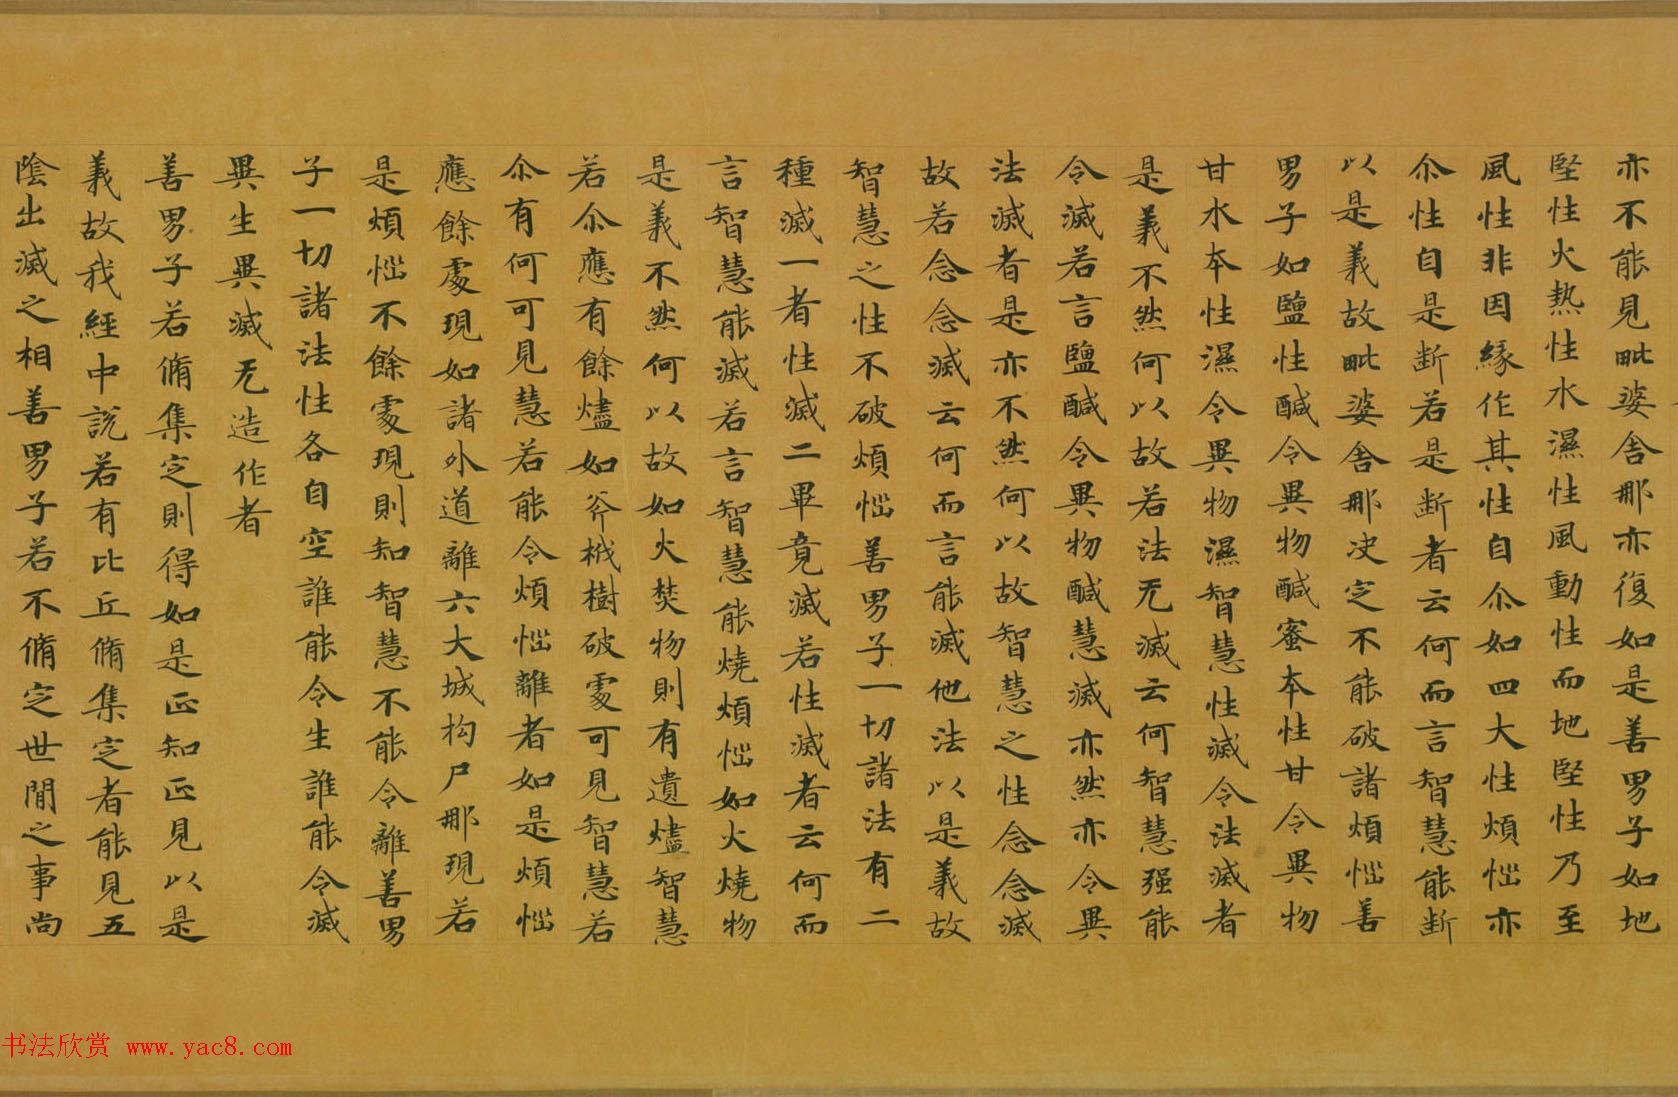 亦不能見毗婆舍那亦復如是善男子如地
堅性火熱性水濕性風動性而地堅性乃至
風性非因緣作其性自尒如四大性煩惱亦
尒性自是斷若是斷者云何而言智慧能斷
以是義故毗婆舍那决定不能破諸煩惱善
男子如鹽性醎令異物醎蜜本性甘令異物
甘水本性濕令異物濕智慧性滅令法滅者
是義不然何以故若法无滅云何智慧强能
令滅若言鹽醎令異物醎慧滅亦然亦令異
法滅者是亦不然何以故智慧之性念念滅
故若念念滅云何而言能滅他法以是義故
智慧之性不破煩惱善男子一切諸法有二
種滅一者性滅二畢竟滅若性滅者云何而
言智慧能滅若言智慧能燒煩惱如火燒物
是義不然何以故如火焚物則有遺燼智慧
若尒應有餘燼如斧栰樹破處可見智慧若
尒有何可見慧若能令煩惱離者如是煩惱
應餘處現如諸外道離六大城构尸那現若
是煩惱不餘處現則知智慧不能令離善男
子一切諸法性各自空誰能令生誰能令滅
異生異滅无造作者
善男子若脩集定則得如是正知正見以是
義故我經中說若有比丘脩集定者能見五
陰出滅之相善男子若不脩定世間之事尚
书法欣赏 www.yac8.com